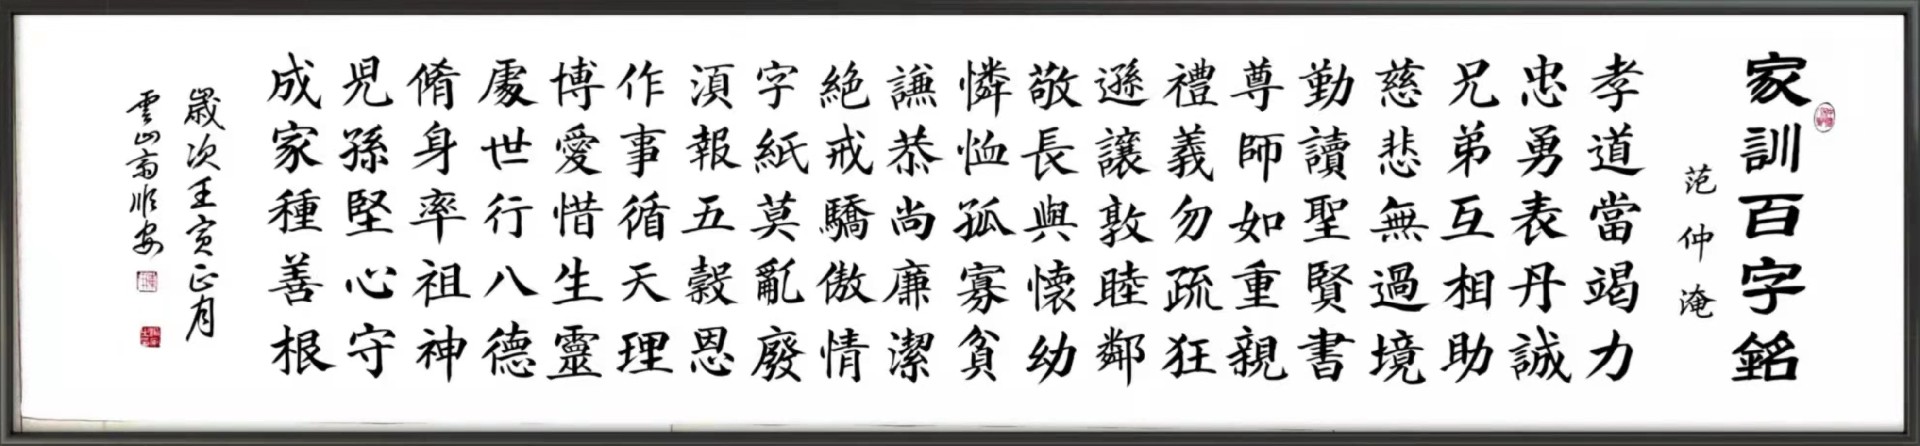 家訓百字銘
范仲淹
孝道當竭力
忠勇表丹誠
兄弟互相助
慈悲無過境
勤讀聖賢書
尊師如重親
禮義勿疏狂
遜讓敦睦鄰
敬長與懷幼
憐恤孤寡貧
謙恭尚廉潔
絶戒驕傲情
字紙莫亂廢
須報五穀恩
作事循天理
博愛惜生靈
處世行八德
脩身率祖神
兒孫堅心守
成家種善根
歲次壬寅正月
雲山斎順安